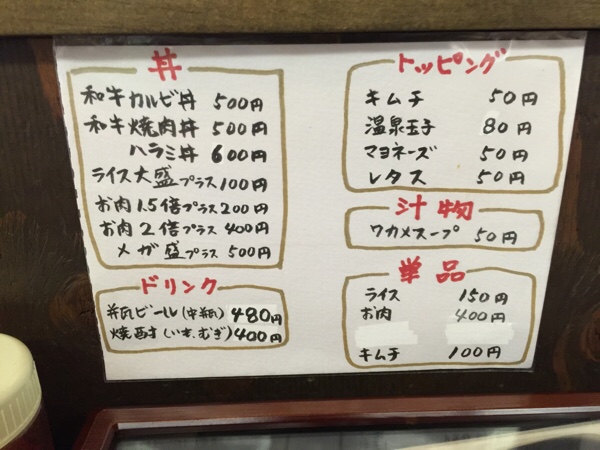 丼
和牛カルビ丼 500円
和牛焼肉丼 500円
ハラミ丼 600円
ライス大盛プラス100円
お肉1.5倍プラス200円
お肉2倍プラス400円
メガ盛プラス500円
ドリンク
瓶ビール(中瓶) 480円
焼酎(いも、むぎ)400円
トッピング
キムチ 50円
温泉玉子 80円
マヨネーズ 50円
レタス 50円
汁物
ワカメスープ 50円
単品
ライス 150円
お肉 400円
キムチ 100円